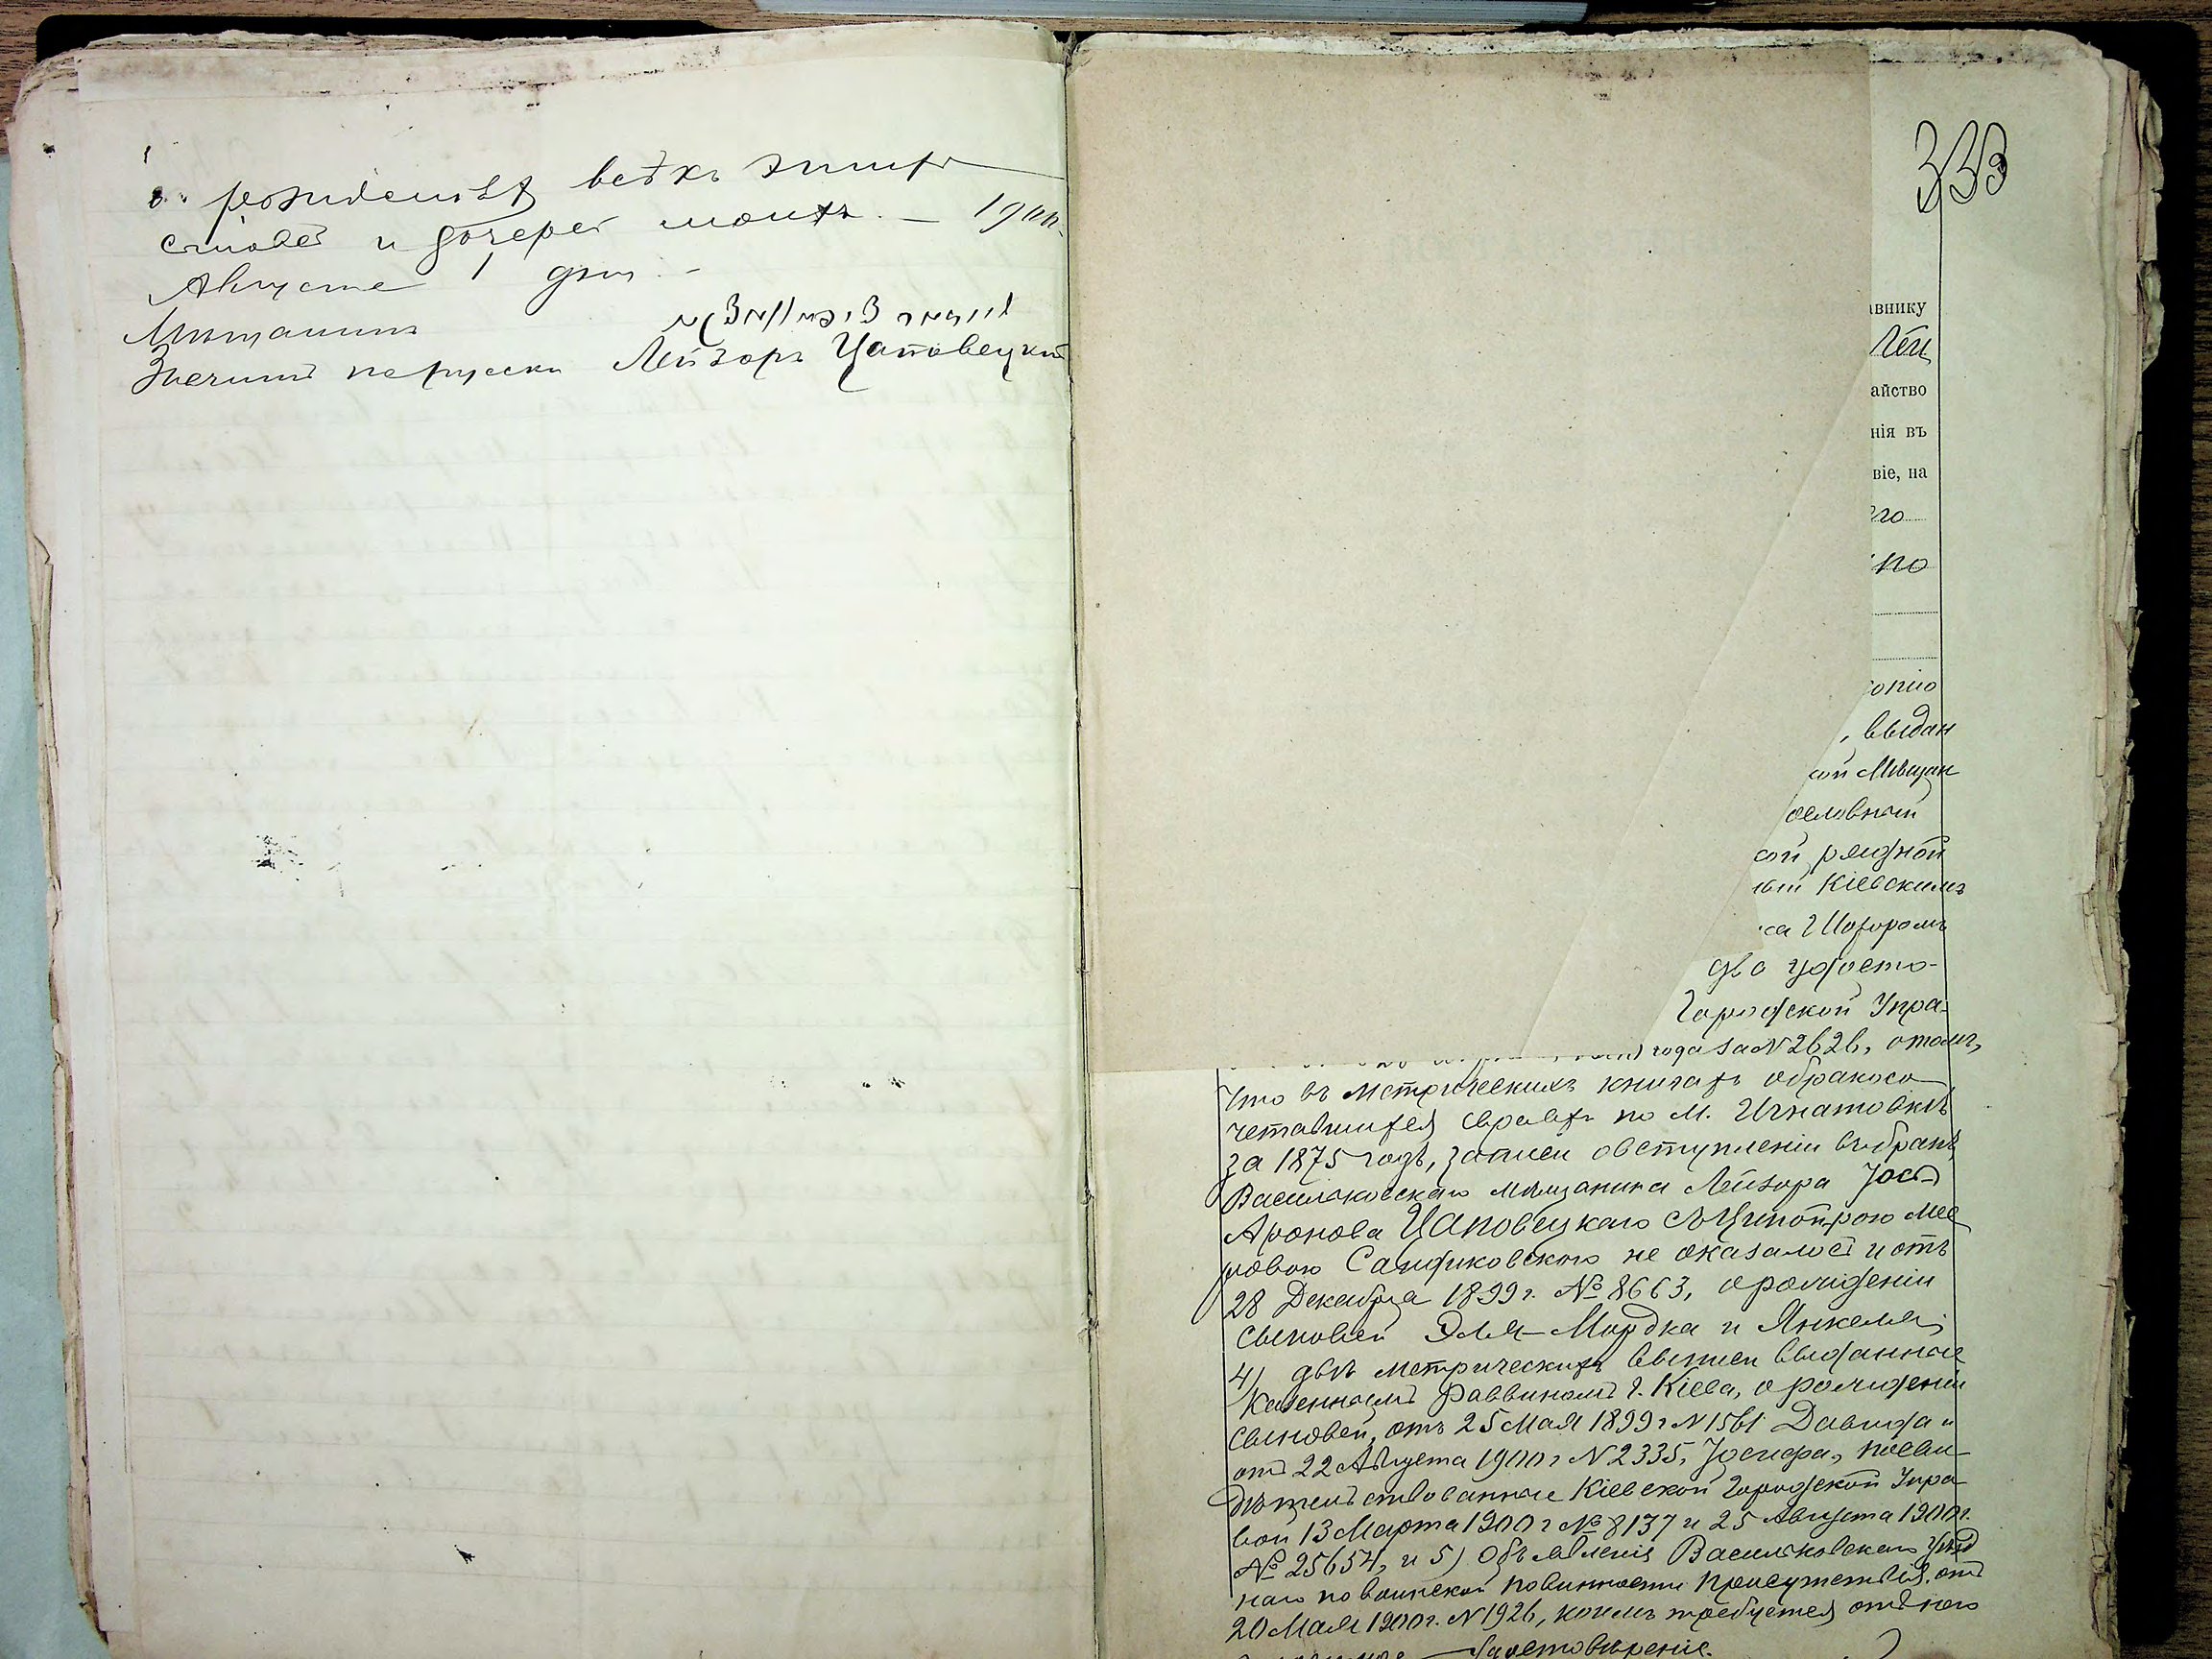 о рожденія всѣхъ этихъ
синовей и дочерей моихъ. — 1900
Августа 1 дня. -
Мѣщанинъ
Значитъ порусски Лейзоръ Цаповецкій
333
авнику
Лей
айство
нія въ
віе, на
его
по
копію
, выдан
кой Мѣщан
ословный
ской рядной
ный Кіевскимъ
два удосто-
Городской Упра-
года за N 2626, отомъ,
что въ метрическихъ книгахъ обракосо
четавшихся евреевъ по м. Игнатовкѣ
за 1875 годъ, записи овступленіи вбракъ
Васильковскаго мѣщанина Лейзора Іось
Аронова Цаповецкаго съ Ципойрою Мее
ровою не оказалось и отъ
28 Декабря 1899 г. № 8663, орожденіи
сыновей Эля-Мордка и Янкеля;
4) двѣ метрическихъ выписи выданные
Казеннымъ Раввиномъ г. Кіева, орожденіи
сыновей, отъ 25 Мая 1899 г N 1561 Давида и
отъ 22 Августа 1900 г N 2335, Іосифа, посви-
дѣтельствованные Кіевской Городской Упра
вой 13 Марта 1900 г № 8137 и 25 Августа 1900 г.
№ 25654, и 5) Объявленія Васильковскаго Уѣзд
наго по воинской повинности Присутствія, отъ
20 Мая 1900 г. N 1926, коимъ требуется отъ него
удостовѣреніе.